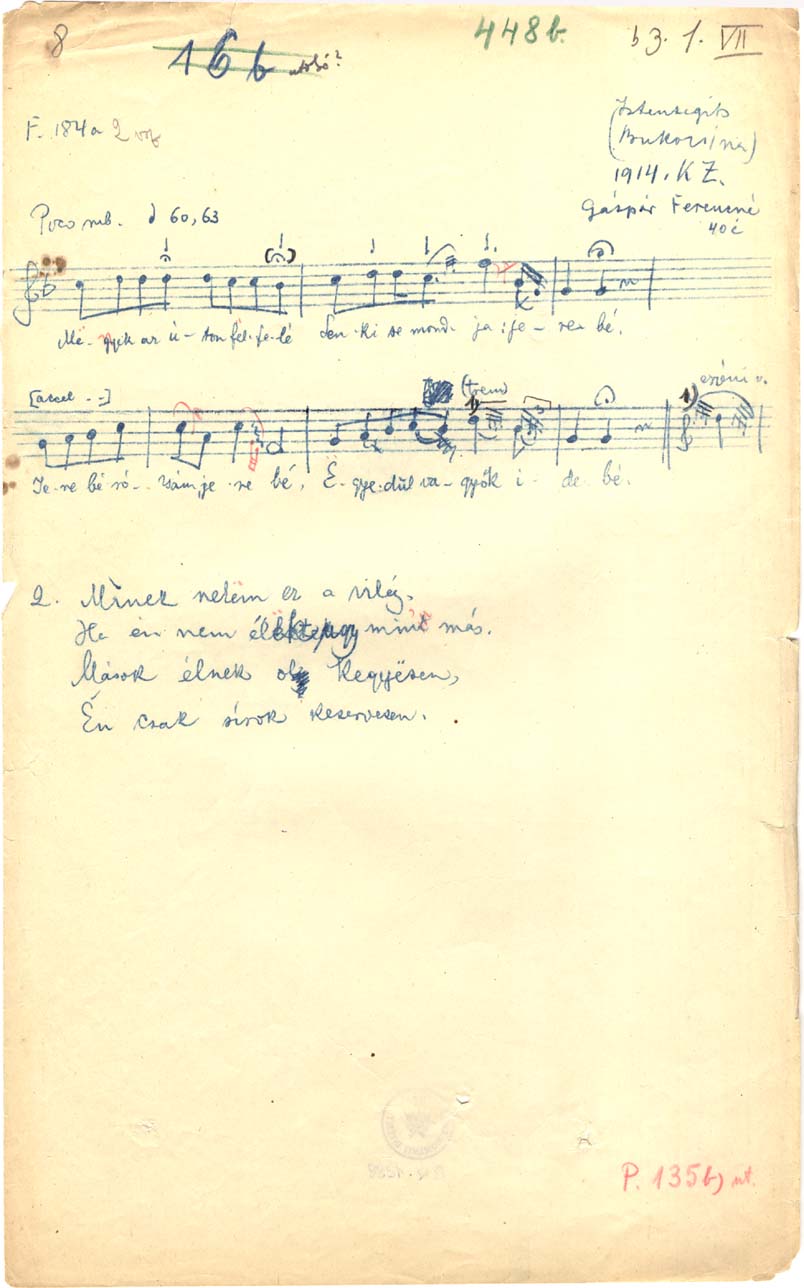 8
16b utolsó?
448b.
b3. 1. VII
F. 184a 2 vsz
Istensegits
(Bukovina)
1914. KZ.
Gáspár Ferencné
40 é
Poco rub. 60,63
Më-gyek az ú-ton fél-fe-lé Sen-ki se mond-ja: je-re bé.
[accel - -]
(trem)
1)
1)
Je-re bé ró-zsám, je-re bé, Ë-gye-dül va-győk i-de-bé.
2. Minek nekëm ez a világ,
Ha én nem élëk úgy mint más.
Mások élnek kegyësen,
Én csak sírok keservesen.
P. 135b) ut.